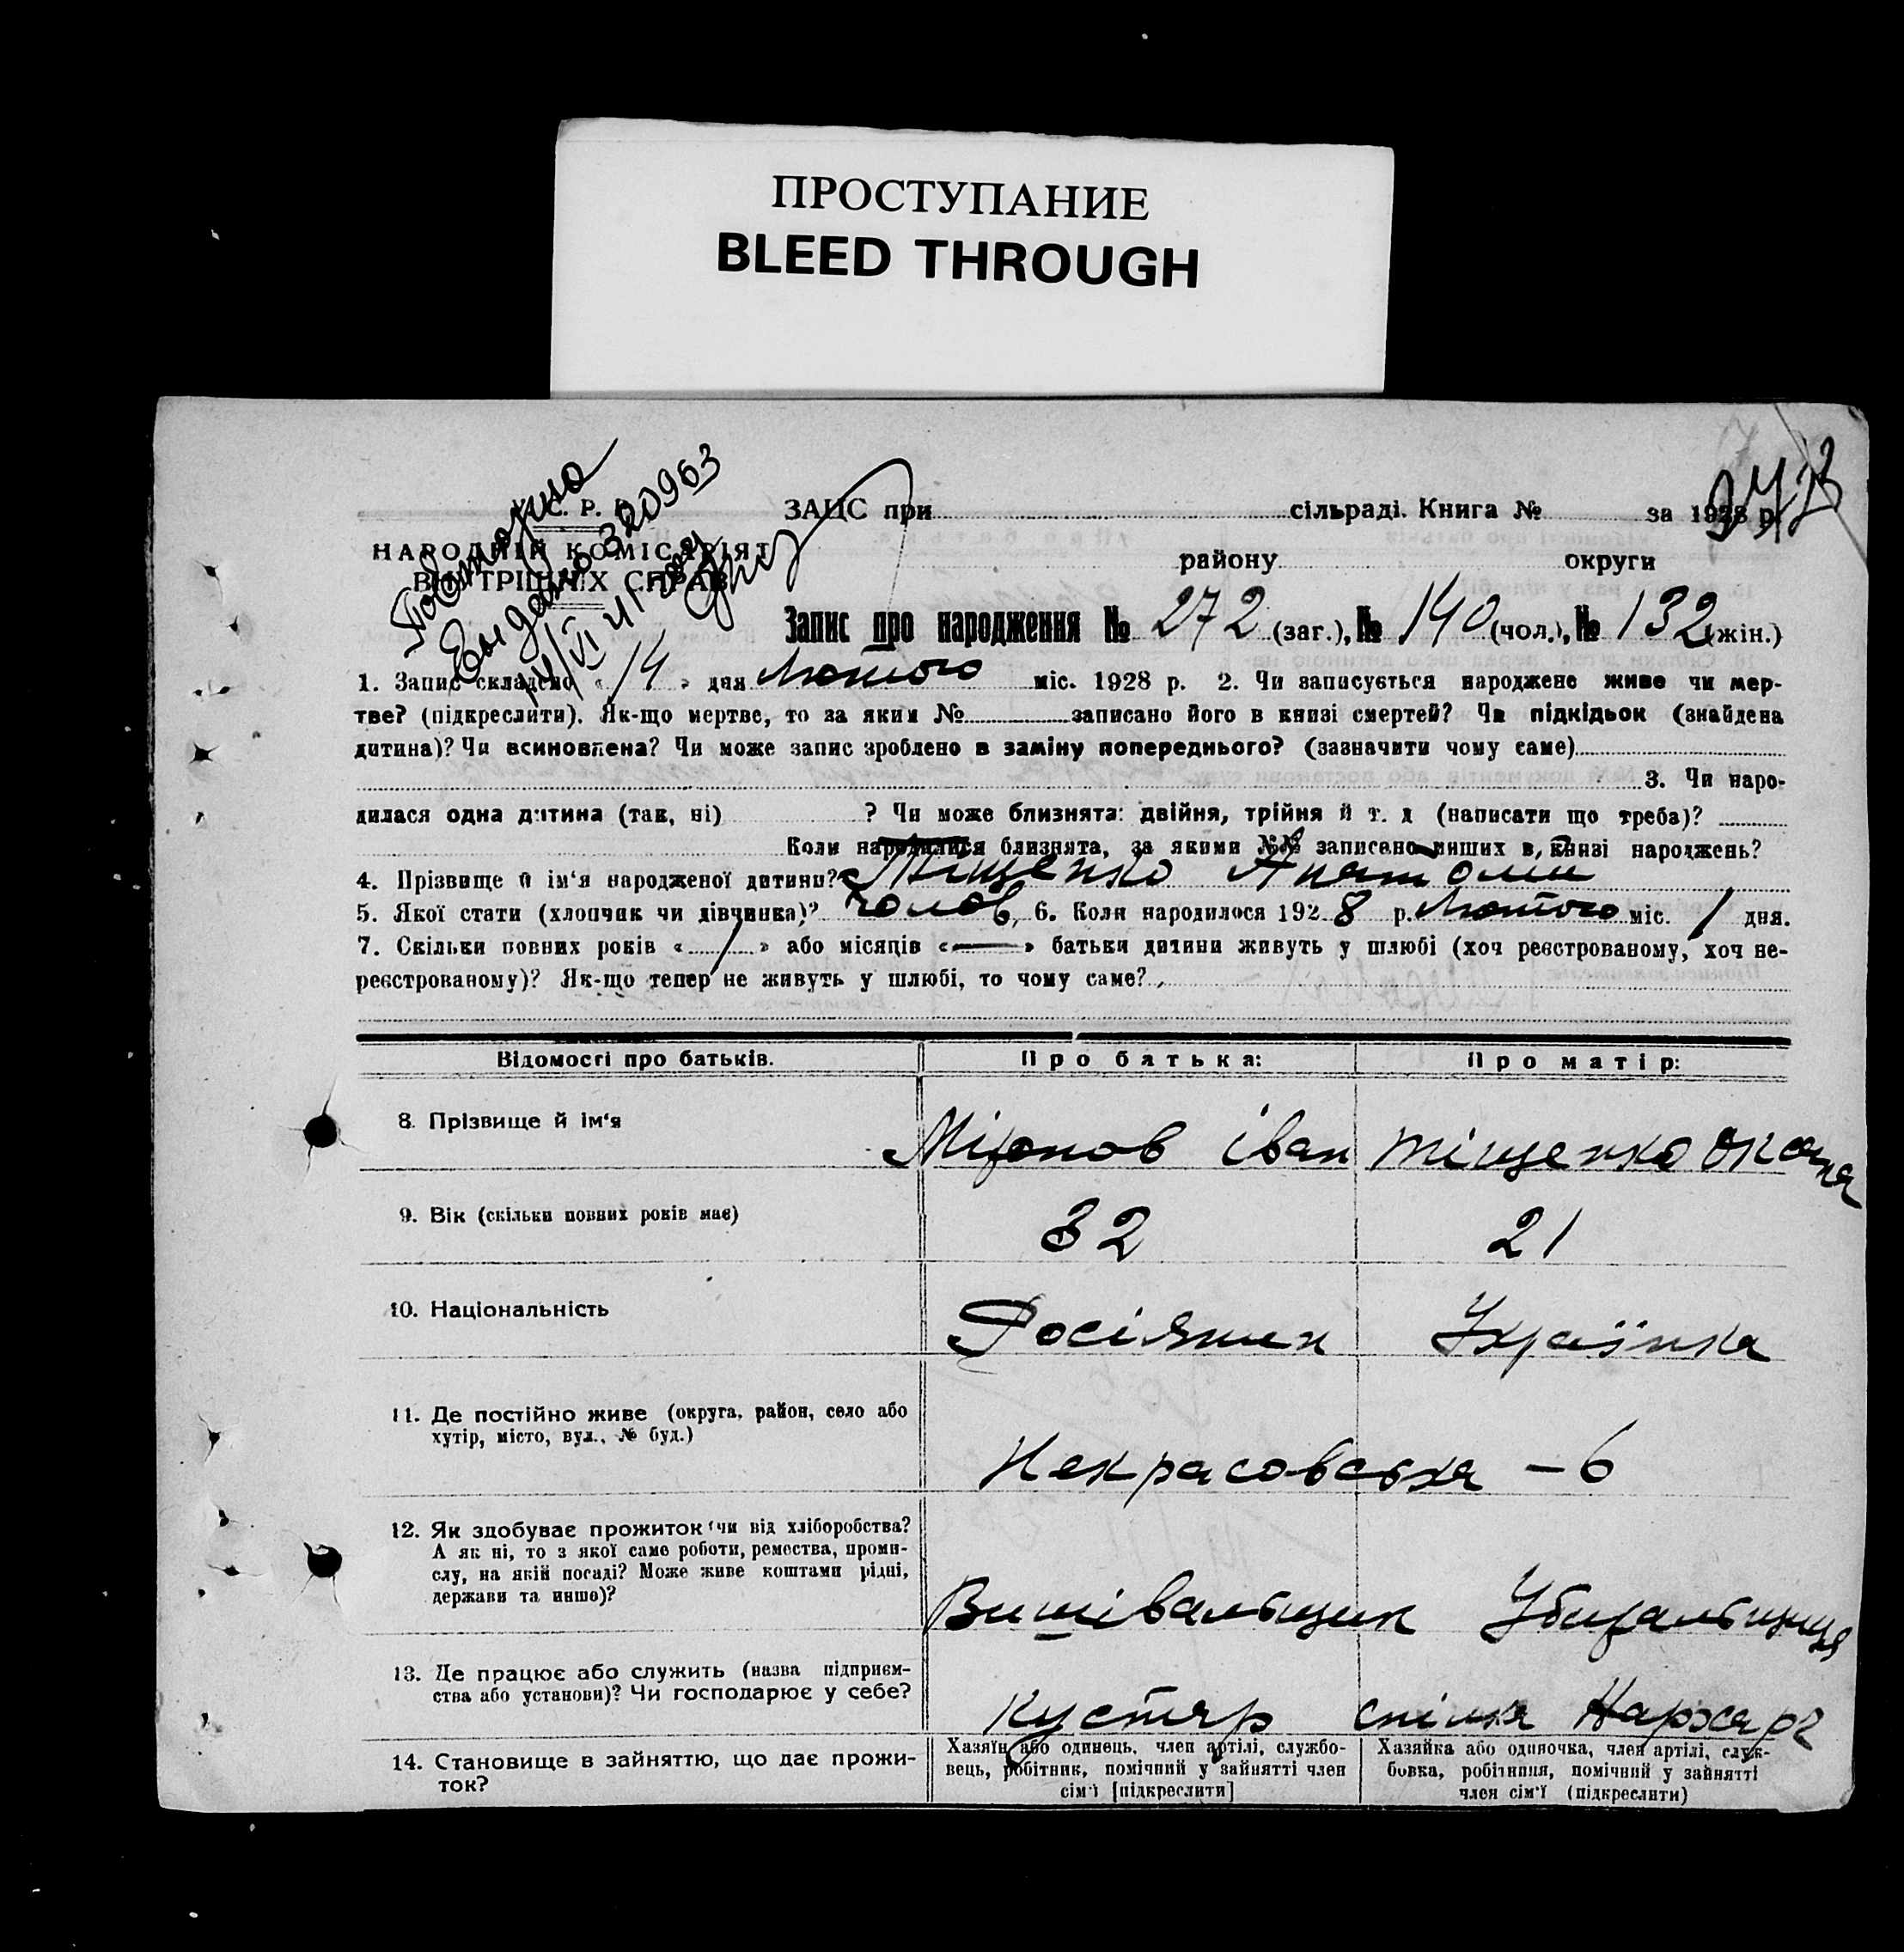 ПРОСТУПАНИЕ
BLEED THROUGH
С. Р. Р.
НАРОДНІЙ КОМІСАРІЯТ
ВНУТРІШНІХ СПРАВ
Повторно
Выдано 320963
14/VI 41
ЗАГС при сільраді. Книга № за 1928 р.
району округи
Запис про народження № 272 (заг.), № 140 (чол.), № 132 (жін.)
1. Запис складено « 14 » дня Лютого міс. 1928 р. 2. Чи записується народжене живе чи мер-
тве? (підкреслити). Як-що мертве, то за яким № записано його в книзі смертей? Чи підкідьок (знайдена
дитина)? Чи всиновлена? Чи може запис зроблено в заміну попереднього? (зазначити чому саме)
3. Чи наро-
дилася одна дитина (так, ні) ? Чи може близнята: двійня, трійня й т. д (написати що треба)?
Коли народилися близнята, за якими №№ записано инших в книзі народжень?
4. Прізвище й ім‘я народженої дитини? Тіщенко Анатолий
5. Якої стати (хлопчик чи дівчинка)? чолов. 6. Коли народилося 1928 р. Лютого міс. 1 дня.
7. Скільки повних років « 1 » або місяців « — » батьки дитини живуть у шлюбі (хоч реєстрованому, хоч не-
реєстрованому)? Як-що тепер не живуть у шлюбі, то чому саме?
Відомості про батьків. Про батька: Про матір:
8. Прізвище й ім‘я Міронов Іван Тіщенко Оксана
9. Вік (скільки повних років має) 32 21
10. Національність Росіянин Українка
11. Де постійно живе (округа, район, село або
хутір, місто, вул., № буд.)
Некрасовська – 6
12. Як здобуває прожиток (чи від хліборобства?
А як ні, то з якої саме роботи, ремества, проми-
слу, на якій посаді? Може живе коштами рідні,
держави та инше)?
Вишівальщик Убиральщиця
13. Де працює або служить (назва підприєм-
ства або установи)? Чи господарює у себе?
Кустяр спілка Нархарч
14. Становище в зайняттю, що дає прожи-
ток?
Хазяїн або одинець, член артілі, службо-
вець, робітник, помічний у зайнятті член
сім‘ї [підкреслити]
Хазяйка або одиночка, член артілі, служ-
бовка, робітниця, помічний у зайнятті
член сім‘ї (підкреслити)